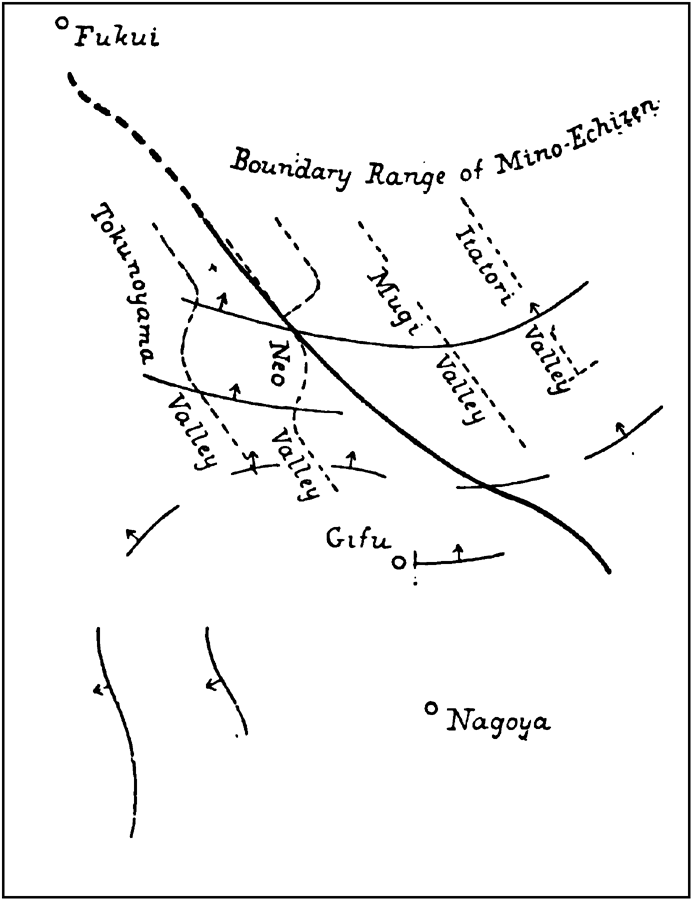 Fukui
Boundary Range of Mino-Echizen
Tokunoyama
Valley
Neo
Valley
Mugi
Valley
Itatori
Valley
Gifu
Nagoya